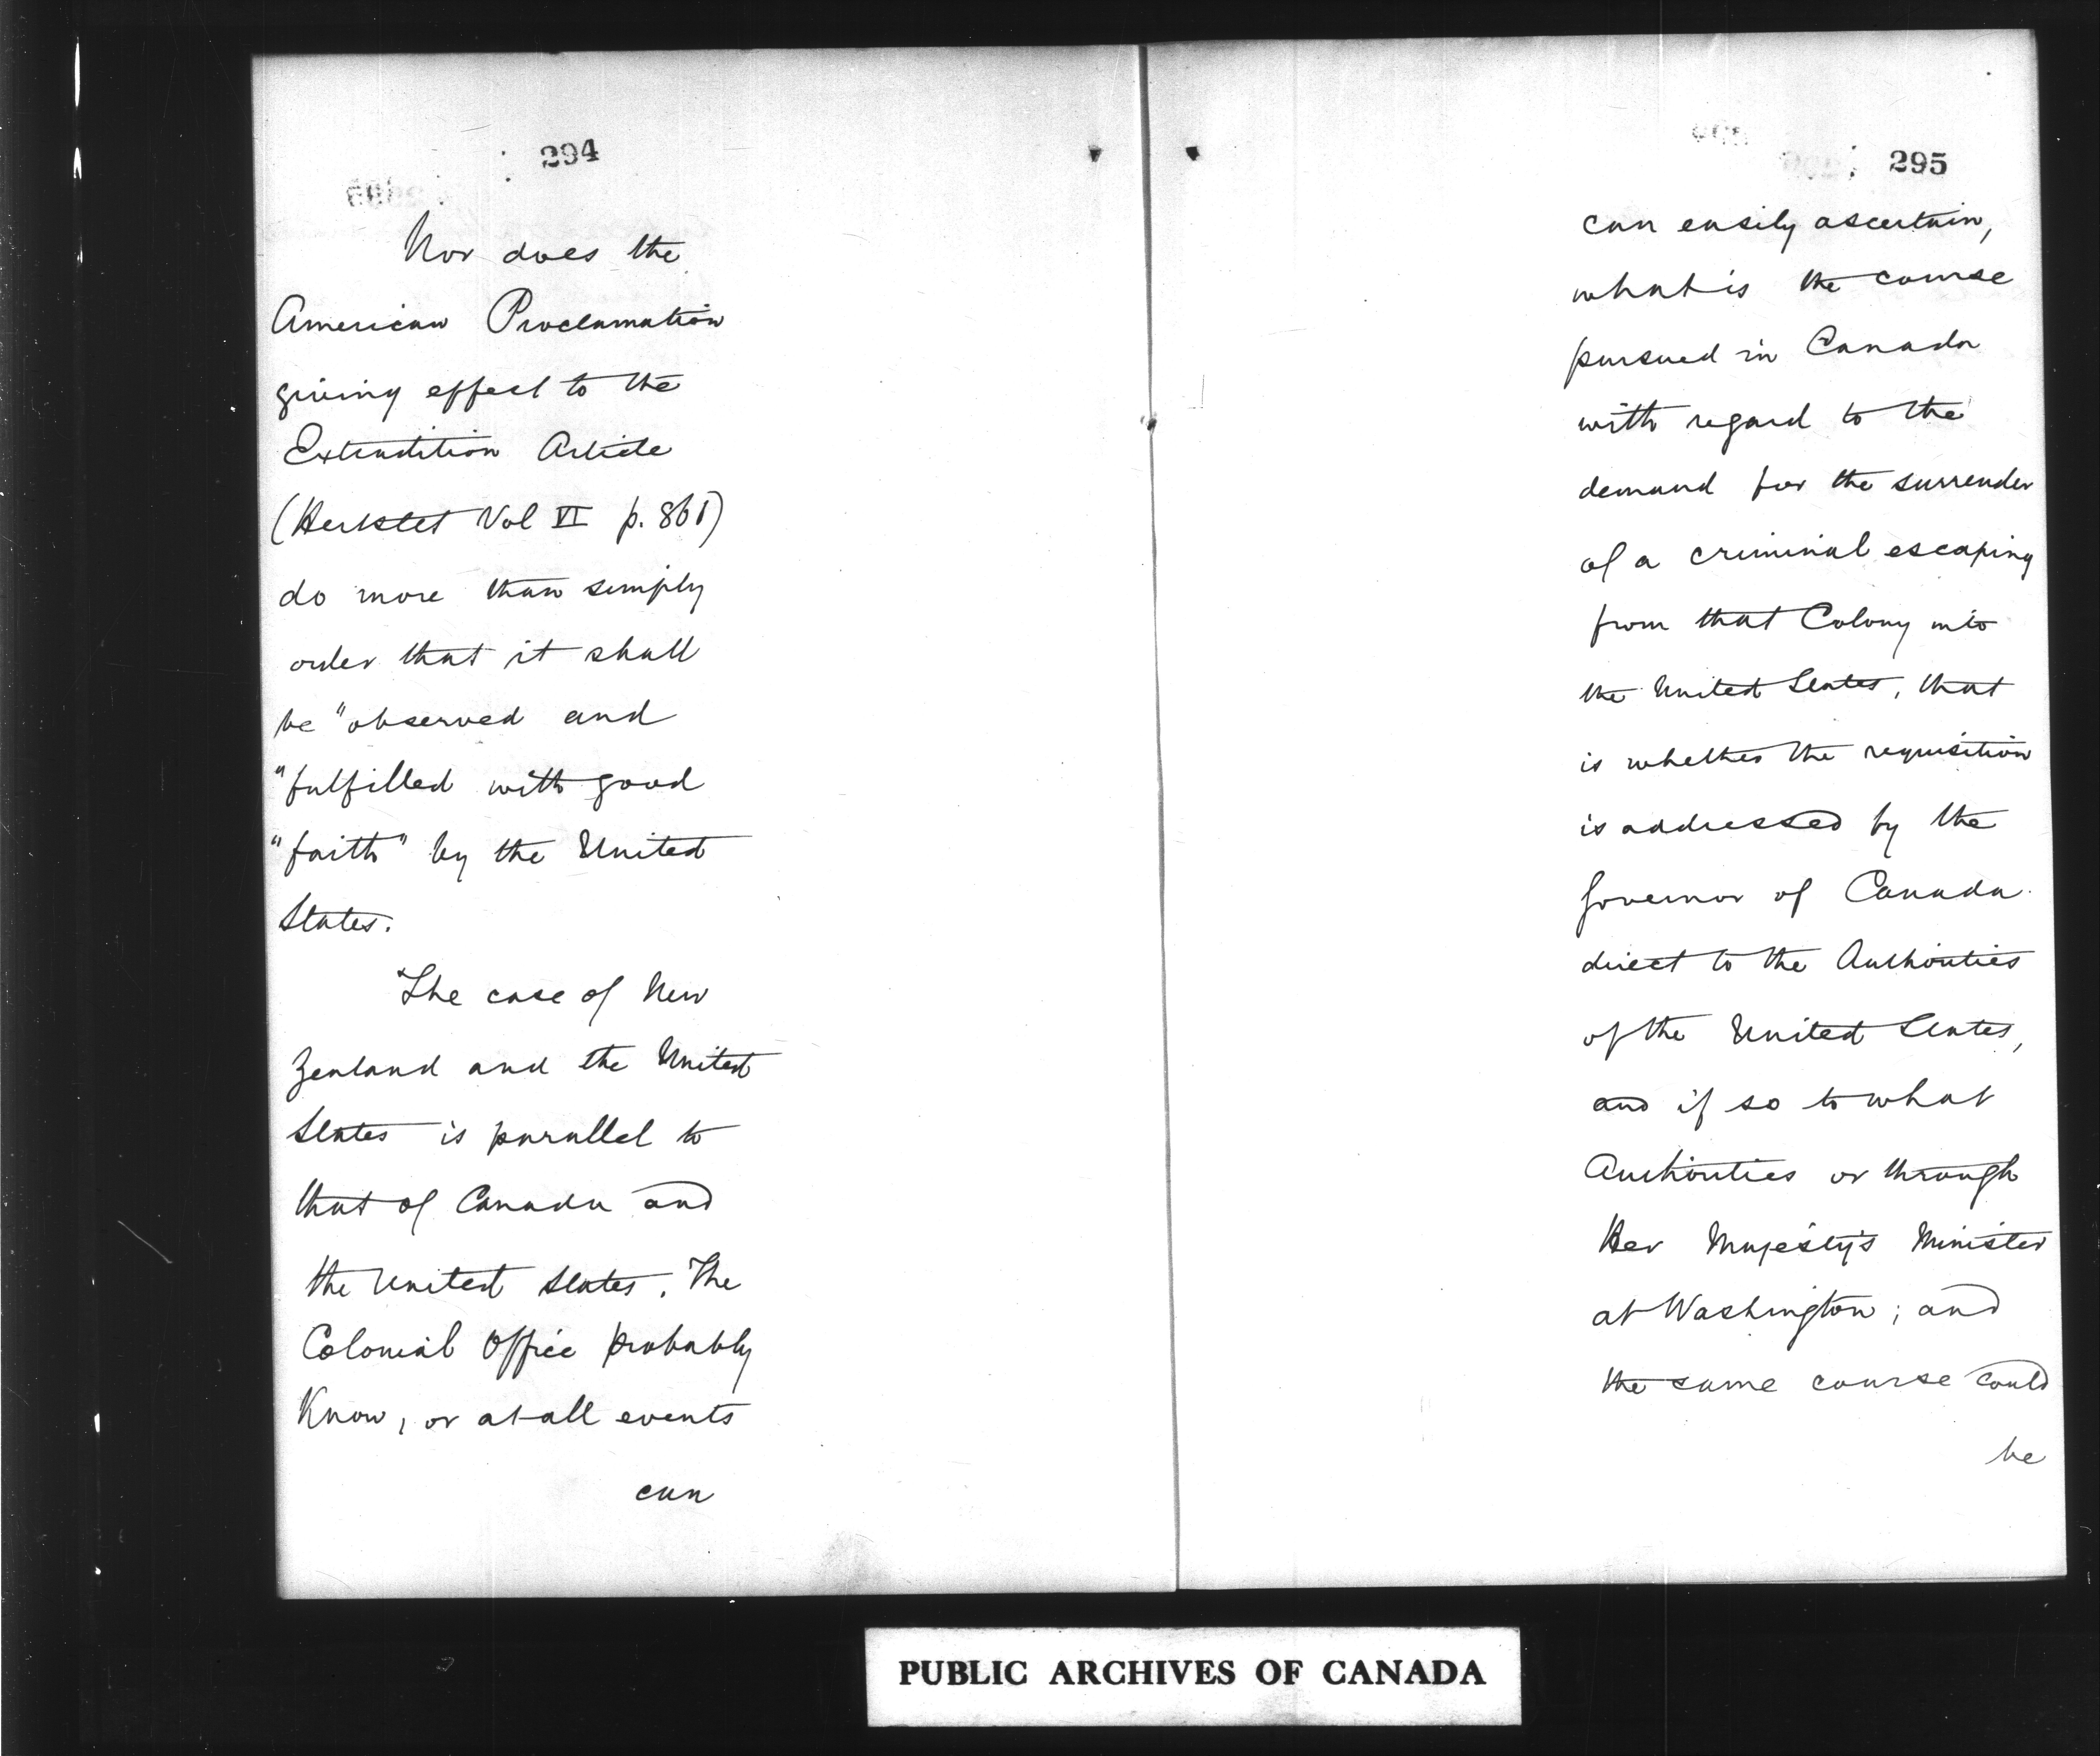 294
Nor does the
American Proclamation
giving effect to the
Extradition Article
(Hertslet Vol VI p. 861)
do more than simply
order that it shall
be "observed and
"fulfilled with good
"faith" by the United
States.
The case of New
Zealand and the United
States is parallel to
that of Canada and
the United States. The
Colonial Office probably
Know, or at all events
can
295
can easily ascertain,
what is the course
pursued in Canada
with regard to the
demand for the surrender
of a criminal escaping
from that Colony into
the United States, that
is whether the requisition
is addressed by the
Governor of Canada
direct to the Authorities
of the United States,
and if so to what
Authorities or through
Her Majesty's Minister
at Washington; and
the same course could
be
PUBLIC ARCHIVES OF CANADA